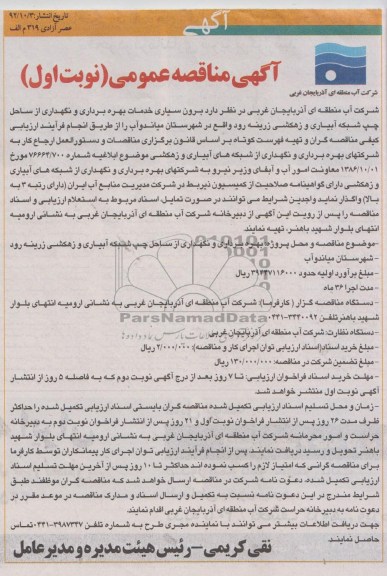 آگهی
تاریخ انتشار: ۹۲/۱۰/۳
عصر آزادی ۳۱۹ م الف
آگهی مناقصه عمومی (نوبت اول)
شرکت آب منطقه ای آذربایجان غربی
شرکت آب منطقه ای آذربایجان غربی در نظر دارد برون سپاری خدمات بهره برداری و نگهداری از ساحل
چپ شبکه آبیاری و زهکشی زرینه رود واقع در شهرستان میاندوآب را از طریق انجام فرآیند ارزیابی
کیفی مناقصه گران و تهیه فهرست کوتاه بر اساس قانون برگزاری مناقصات و دستورالعمل ارجاع کار به
شرکتهای بهره برداری و نگهداری از شبکه های آبیاری و زهکشی موضوع ابلاغیه شماره ۷۶۶۶۴/۷۰۰ مورخ
۱۳۸۶/۱۰/۰۱ معاونت امور آب و آبفای وزیر نیرو به شرکتهای بهره برداری و نگهداری از شبکه های آبیاری
و زهکشی دارای گواهینامه صلاحیت از کمیسیون ذیربط در شرکت مدیریت منابع آب ایران (دارای رتبه ۳ به
بالا) واگذار نماید ولذین شرایط می توانند در صورت تمایل اسناد مربوط به استعلام ارزیابی و اسناد
مناقصه را پس از رویت این آگهی از دبیرخانه شرکت آب منطقه ای آذربایجان غربی به نشانی ارومیه
انتهای بلوار شهید باهنر، تهیه نمایند.
-موضوع مناقصه و محل پروژه: بهره برداری و نگهداری از ساحل چپ شبکه آبیاری و زهکشی زرینه رود
- شهرستان میاندوآب
- مبلغ برآورد اولیه حدود ۳۹۶۴۷۱۱۶۰۰۰ ریال
- مدت اجرا ۳۶ ماه
- دستگاه مناقصه گزار (کارفرما): شرکت آب منطقه ای آذربایجان غربی به نشانی ارومیه انتهای بلوار
شهید باهنر تلفن ۳۳۴۰۰۹۲-۰۴۴۱
- دستگاه نظارت: شرکت آب منطقه ای آذربایجان غربی
- مبلغ خرید اسناد (اسناد ارزیابی توان اجرای کار و مناقصه): ۲/۰۰۰/۰۰۰ ریال
- مبلغ تضمین شرکت در مناقصه: ۱۳۰/۰۰۰/۰۰۰ ریال
- مهلت خرید اسناد فراخوان ارزیابی: تا ۷ روز بعد از درج آگهی نوبت دوم که به فاصله ۵ روز از انتشار
آگهی نوبت اول منتشر خواهد شد.
- زمان و محل تسلیم اسناد ارزیابی تکمیل شده مناقصه گران بایستی اسناد ارزیابی تکمیل شده را حداکثر
ظرف مدت ۲۶ روز پس از انتشار فراخوان نوبت اول و ۲۱ روز پس از انتشار فراخوان نوبت دوم به دبیرخانه
حراست و امور محرمانه شرکت آب منطقه ای آذربایجان غربی به نشانی ارومیه انتهای بلوار شهید
باهنر تحویل و رسید دریافت نمایند. پس از انجام فرآیند ارزیابی توان اجرای کار پیمانکاران توسط کارفرما
برای مناقصه گرانی که امتیاز لازم را کسب نموده اند حداکثر تا ۱۰ روز پس از آخرین مهلت تسلیم اسناد
ارزیابی تکمیل شده، دعوت نامه شرکت در مناقصه ارسال خواهد شد که مناقصه گران موظفند طبق
شرایط مندرج در این دعوت نامه نسبت به تکمیل و ارسال اسناد و مدارک مناقصه در موعد مقرر در
دعوت نامه به دبیرخانه حراست شرکت آب منطقه ای آذربایجان غربی اقدام نمایند.
جهت دریافت اطلاعات بیشتر می توانند با نماینده مجری طرح به شماره تلفن ۳۹۸۷۳۴۷-۰۴۴۱ تماس
حاصل نمایند.
نقی کریمی - رئیس هیئت مدیره و مدیر عامل
ParsNamadData